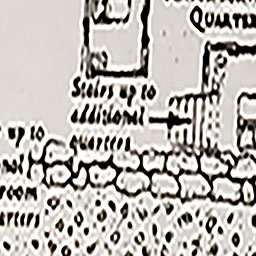 QUARTE
Stales up to
additional
quarters
up to
nal
room
arters